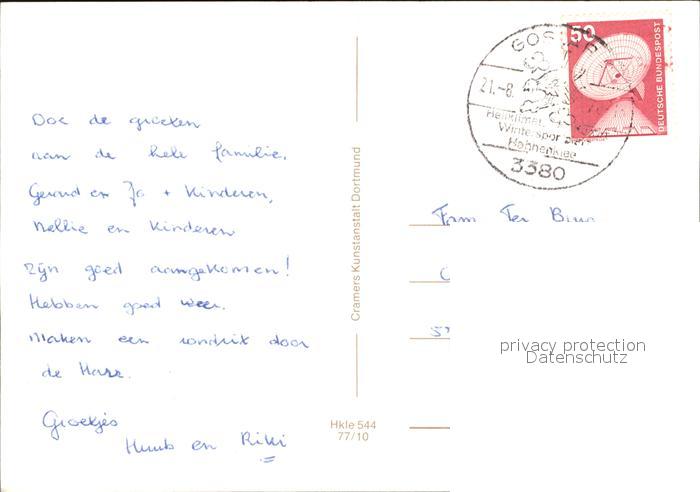 Doe de groeten
aan de hele familie.
Gerard en Jo + Kinderen,
Nellie en Kinderen
zijn goed aangekomen!
Hebben goed weer.
Maken een rondrit door
de Harz.
Groetjes
Huub en Riki
Cramers Kunstanstalt Dortmund
Hkle 544
77/10
GOSLAR
21.-8.
Heilklimat.
Wintersport
Hahnenklee
3380
50
DEUTSCHE BUNDESPOST
Fam Ter
privacy protection
Datenschutz